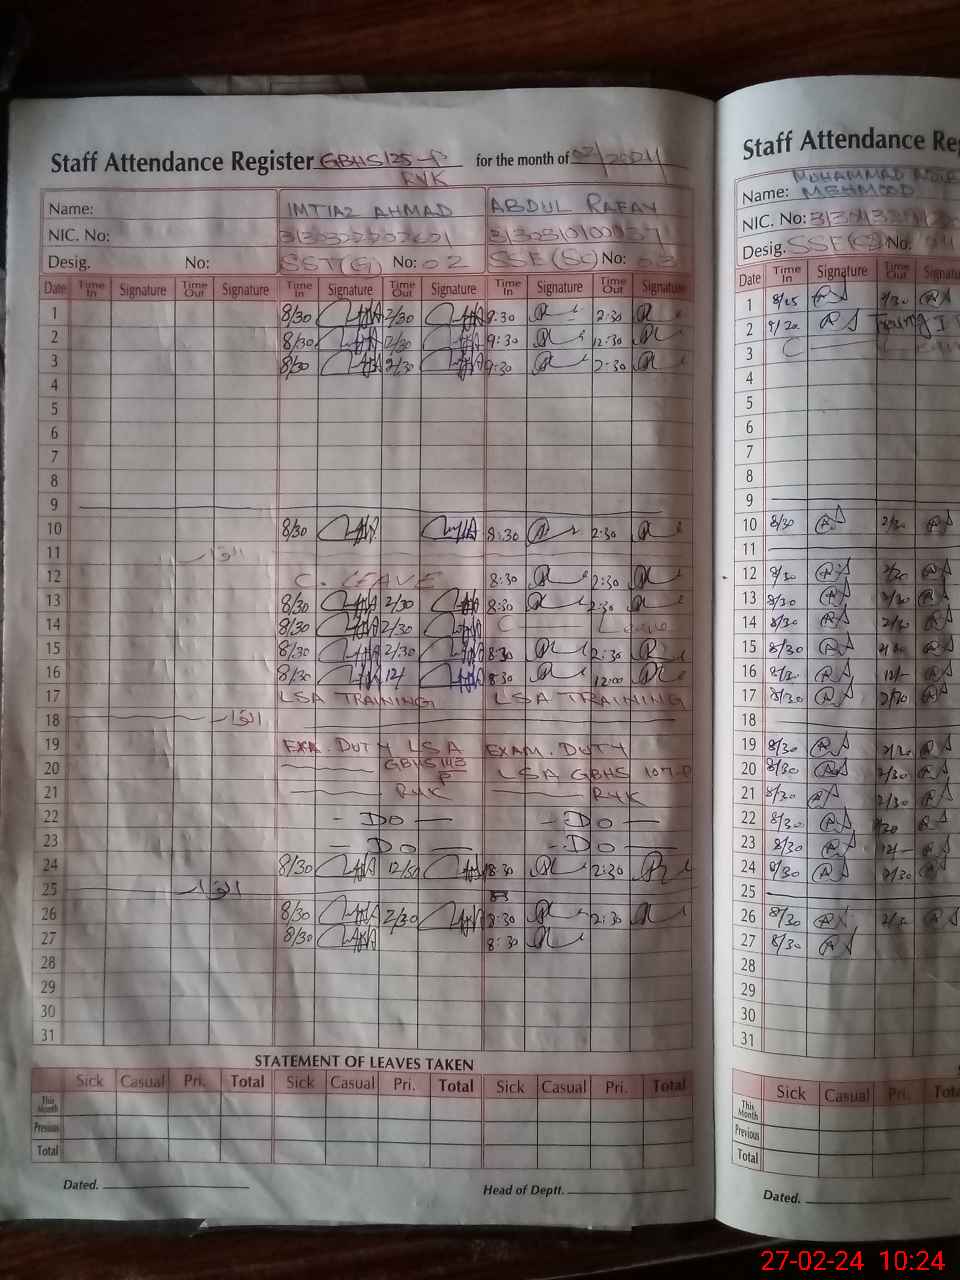 Staff Attendance Register GBHS 125-P for the month of 02/2024
RYK
Name: IMTIAZ AHMAD ABDUL RAFAY
NIC. No:
Desig. No: SST(G) No: 02 SSE(Sc) No:
Date Time In Signature Time Out Signature Time In Signature Time Out Signature Time In Signature Time Out Signature
1 8/30 2/30 8:30 2:30
2 8/30 12/30 9:30 12:30
3 8/30 2/30 9:30 2:30
4
5
6
7
8
9
10 8/30 8:30 2:30
11 اتوار
12 C. LEAVE 8:30 2:30
13 8/30 2/30 8:30 2:30
14 8/30 2/30 C Leave
15 8/30 2/30 8:30 2:30
16 8/30 12/ 8:30 12:00
17 LSA TRAINING LSA TRAINING
18 اتوار
19 EXA. DUTY LSA EXAM. DUTY
20 GBHS 143/P LSA GBHS 107-P
21 RYK RYK
22 - DO - - DO -
23 - DO - - DO -
24 8/30 12/50 8:30 2:30
25 اتوار
26 8/30 2/30 8:30 2:30
27 8/30 8:30
28
29
30
31
STATEMENT OF LEAVES TAKEN
Sick Casual Pri. Total Sick Casual Pri. Total Sick Casual Pri. Total
This Month
Previous
Total
Dated. Head of Deptt.
Staff Attendance Reg
MUHAMMAD
Name: MEHMOOD
NIC. No:
Desig. SSE(CS) No. 04
Date Time In Signature Time Out Signatu
1 8/25 2/30
2 9/20 Training
3 C
4
5
6
7
8
9
10 8/30 2/30
11
12 8/30 2/30
13 8/30 2/30
14 8/30 2/30
15 8/30 2/30
16 8/30 12/-
17 8/30 2/30
18
19 8/30 2/30
20 8/30 2/30
21 8/30 2/30
22 8/30 2/30
23 8/30 12/-
24 8/30 2/30
25
26 8/30 2/30
27 8/30
28
29
30
31
Sick Casual Pri. Tota
This Month
Previous
Total
Dated.
27-02-24 10:24